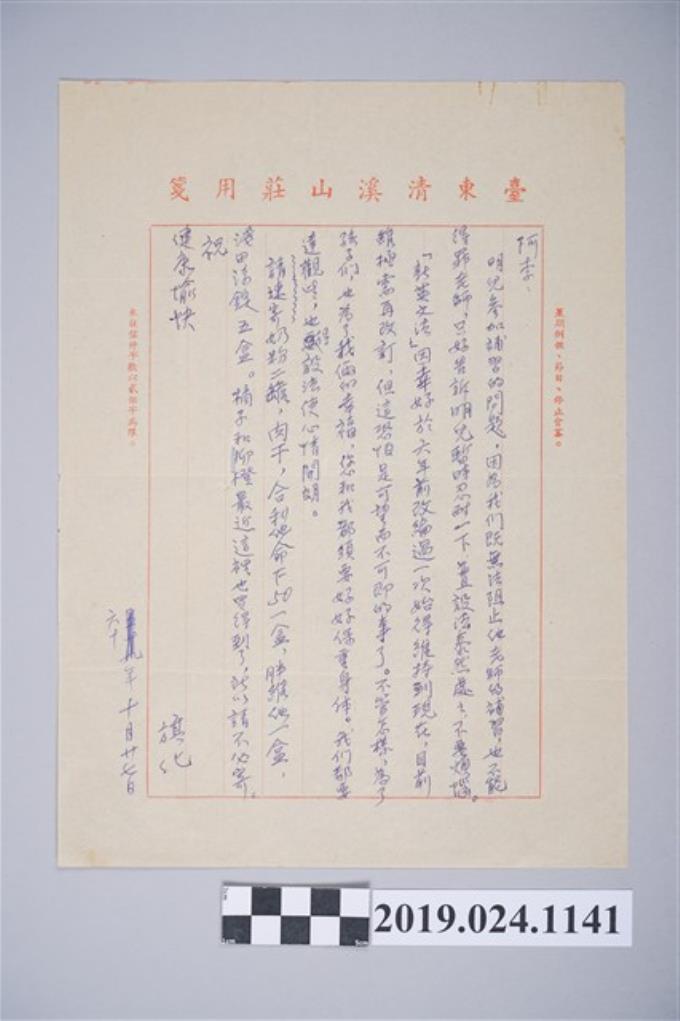 臺東清溪山莊用箋
夏期例假、節日、停止會客。
阿李：
明兒參加補習的問題，因為我们既無法阻止他老師的補習，也不能
得罪老師，只好告訴明兒暫時忍耐一下，並設法泰然處之，不要煩惱。
「新英文法」因幸好於六年前改編過一次始得維持到現在，目前
雖極需再改訂，但這恐怕是可望而不可即的事了。不管怎樣，為了
孩子们，也為了我倆的幸福，您和我都須要好好保重身体。我们都要
達觀些，也設法使心情開朗。
請速寄奶粉二罐，肉干，合利他命F50一盒，勝維他一盒，
淺田飴錠五盒。橘子和柳橙最近這裡也買得到了，所以請不必寄。
祝
健康愉快
旗化
六十年十月廿七日
來往信件字數以貳佰字為限。
2019.024.1141